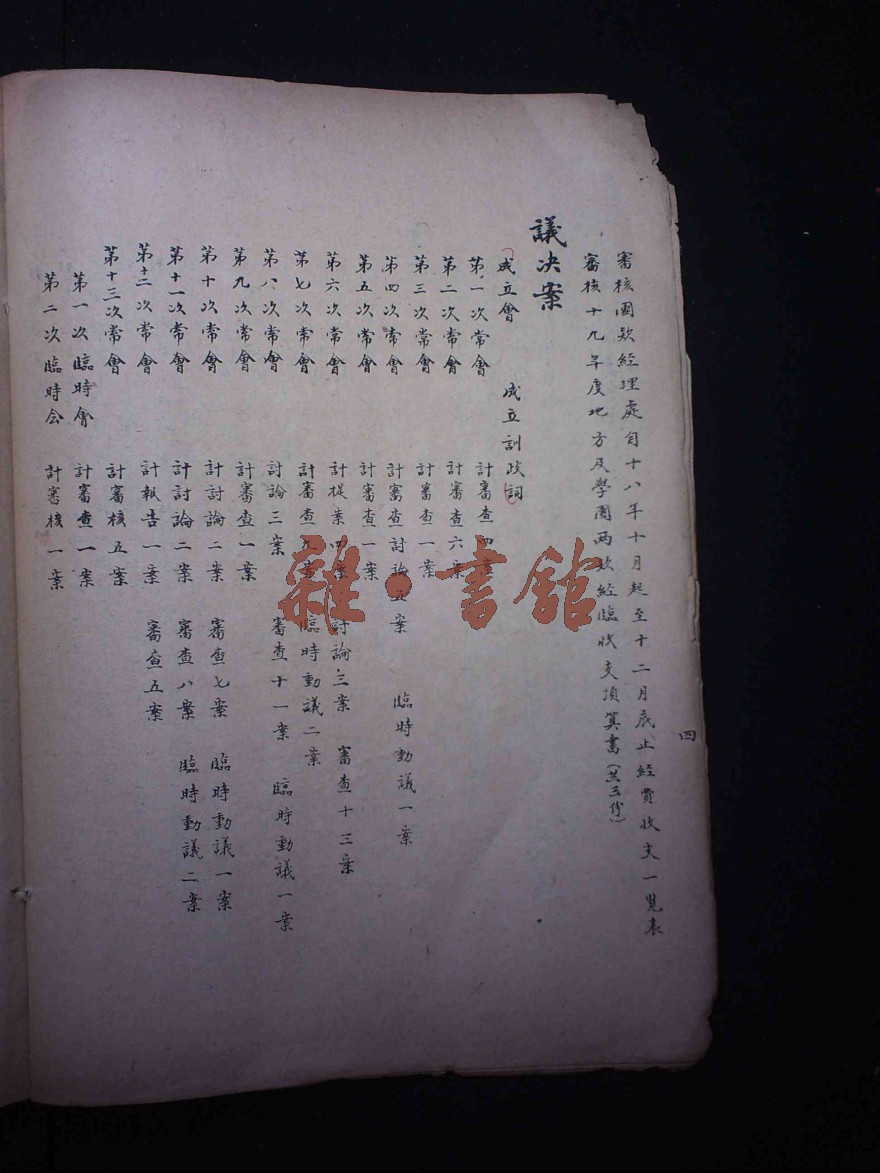 審核團款經理處自十八年十月起至十二月底止經費收支一覽表
審核十九年度地方及學團兩款經臨收支預算書（共三份）
議決案
成立會 成立訓政詞
第一次常會 計審查四案
第二次常會 計審查六案
第三次常會 計審查一案
第四次常會 計審查討論五案 臨時動議一案
第五次常會 計審查一案
第六次常會 計提案四案 討論三案 審查十三案
第七次常會 計審查九案 臨時動議二案
第八次常會 討論三案 審查十一案 臨時動議一案
第九次常會 計審查一案
第十次常會 計討論二案 審查七案 臨時動議一案
第十一次常會 計討論二案 審查八案 臨時動議二案
第十二次常會 計報告一案 審查五案
第十三次常會 計審核五案
第一次臨時會 計審查一案
第二次臨時会 計審核一案
四
雜·書館